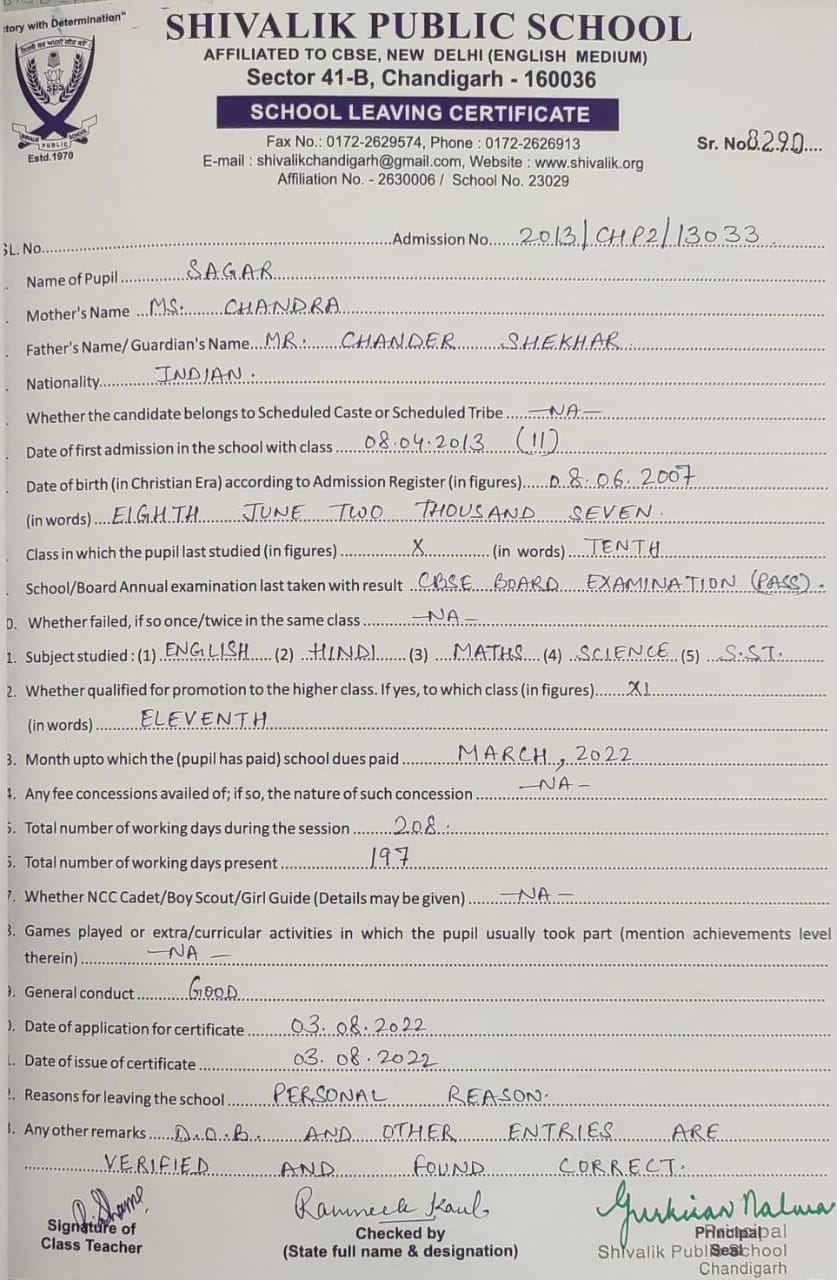 tory with Determination"
SHIVALIK PUBLIC SCHOOL
AFFILIATED TO CBSE, NEW DELHI (ENGLISH MEDIUM)
Sector 41-B, Chandigarh - 160036
SCHOOL LEAVING CERTIFICATE
SPS
SHIVALIK PUBLIC SCHOOL
Estd.1970
Fax No.: 0172-2629574, Phone : 0172-2626913
E-mail : shivalikchandigarh@gmail.com, Website : www.shivalik.org
Affiliation No. - 2630006 / School No. 23029
Sr. No 8290
SL. No. Admission No. 2013/CHP2/13033
. Name of Pupil SAGAR
. Mother's Name MS. CHANDRA
. Father's Name/ Guardian's Name MR. CHANDER SHEKHAR.
. Nationality INDIAN.
. Whether the candidate belongs to Scheduled Caste or Scheduled Tribe —NA—
. Date of first admission in the school with class 08.04.2013 (II)
. Date of birth (in Christian Era) according to Admission Register (in figures) 08.06.2007
(in words) EIGHTH JUNE TWO THOUSAND SEVEN.
. Class in which the pupil last studied (in figures) X (in words) TENTH
. School/Board Annual examination last taken with result CBSE BOARD EXAMINATION (PASS).
0. Whether failed, if so once/twice in the same class —NA—
1. Subject studied : (1) ENGLISH (2) HINDI (3) MATHS (4) SCIENCE (5) S.ST.
2. Whether qualified for promotion to the higher class. If yes, to which class (in figures) XI
(in words) ELEVENTH
3. Month upto which the (pupil has paid) school dues paid MARCH, 2022
4. Any fee concessions availed of; if so, the nature of such concession —NA—
5. Total number of working days during the session 208.
6. Total number of working days present 197
7. Whether NCC Cadet/Boy Scout/Girl Guide (Details may be given) —NA—
8. Games played or extra/curricular activities in which the pupil usually took part (mention achievements level
therein) —NA—
9. General conduct GOOD
0. Date of application for certificate 03.08.2022
1. Date of issue of certificate 03.08.2022
2. Reasons for leaving the school PERSONAL REASON.
3. Any other remarks D.O.B. AND OTHER ENTRIES ARE
VERIFIED AND FOUND CORRECT.
Ramneek Kaul
Signature of
Class Teacher
Checked by
(State full name & designation)
Principal
Seal
Principal
Shivalik Public School
Chandigarh